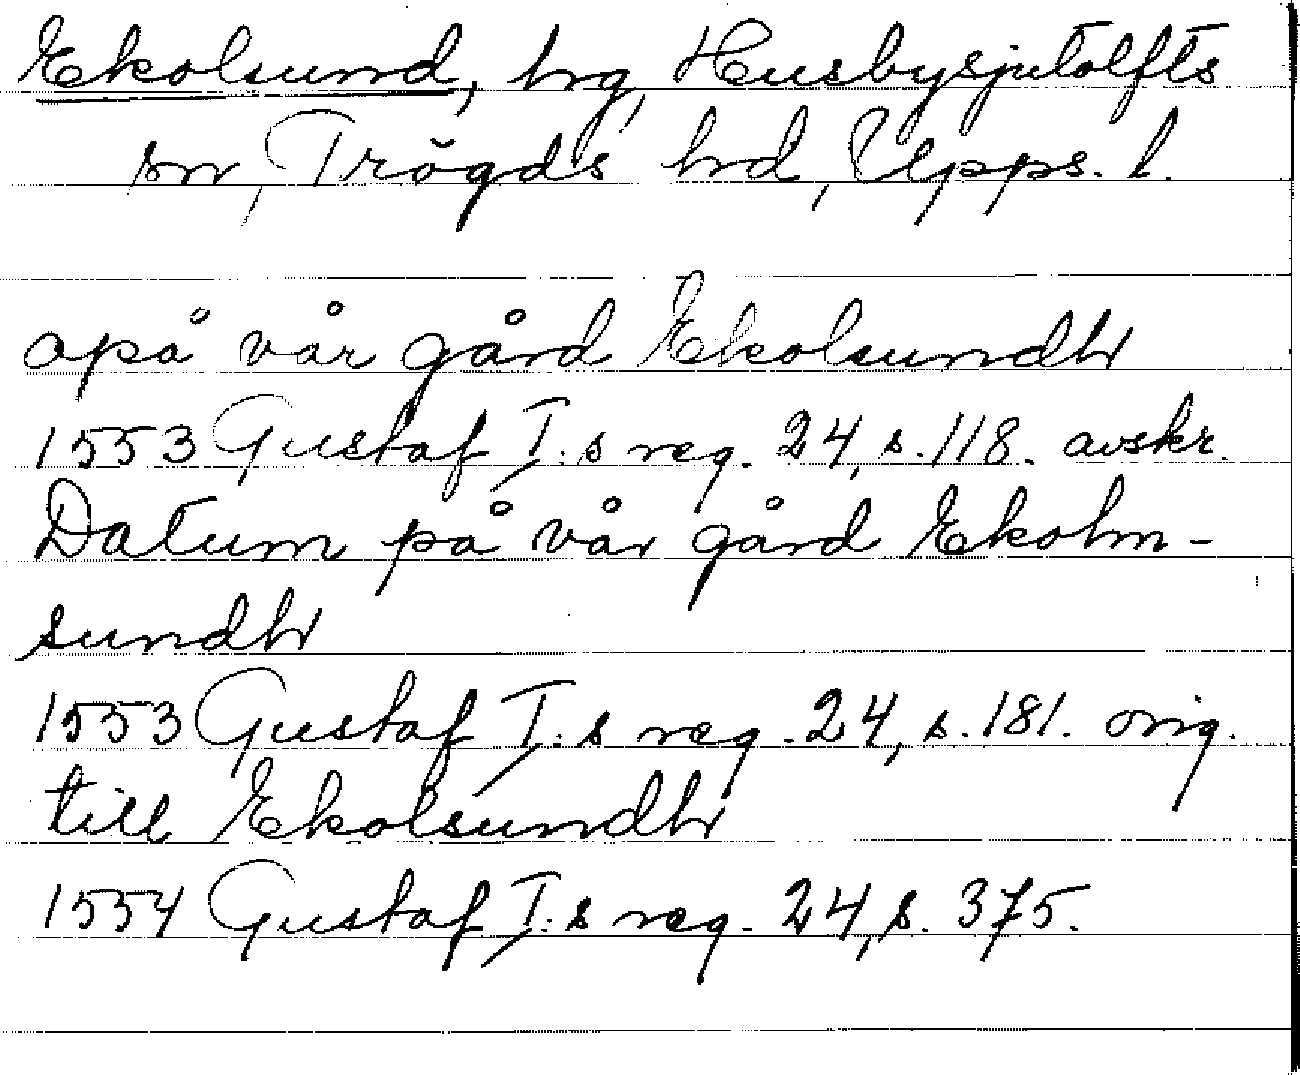 Ekolsund, hrg, Husbysjutolfts
sn, Trögds hrd, Upps. l.
apå vår gård Ekolsundh
1553 Gustaf I:s reg. 24, s. 118. avskr.
Datum på vår gård Ekolm-
sundh
1553 Gustaf I:s reg. 24, s. 181. orig.
till Ekolsundh
1554 Gustaf I:s reg. 24, s. 375.